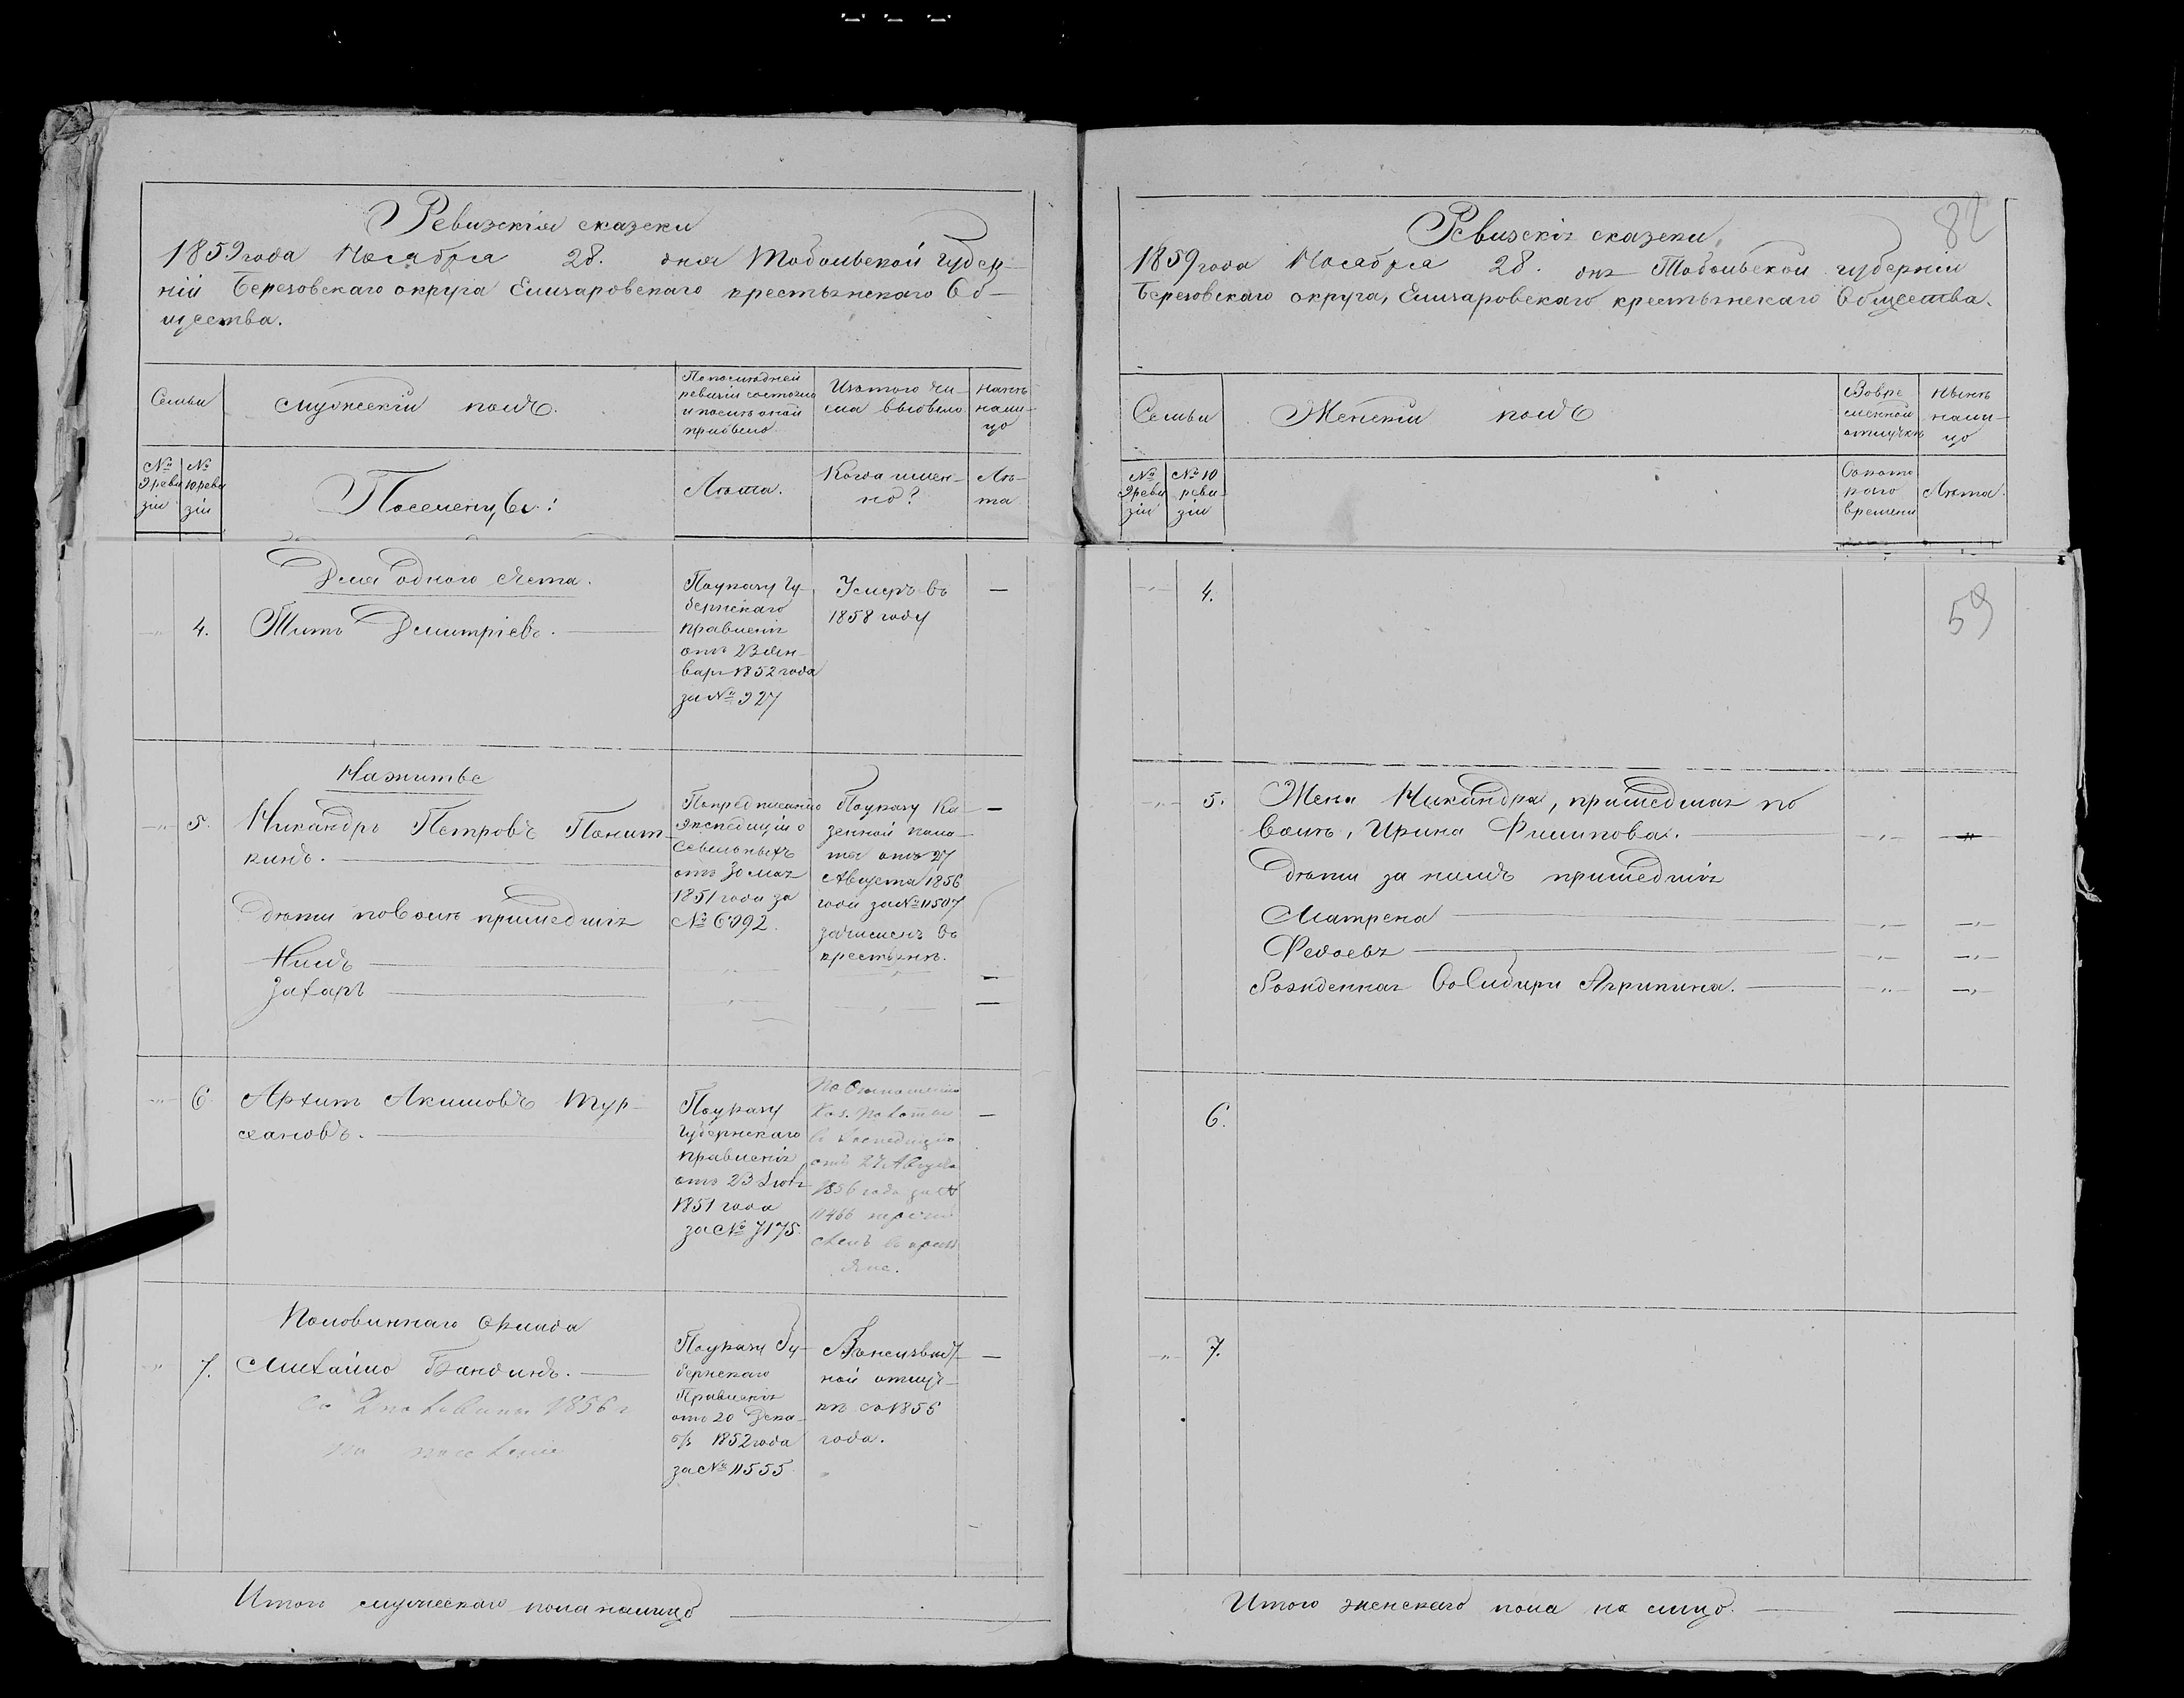 Ревизскія сказски
1859 года Ноября 28. дня Тобольской Губер-
ніи Березовскаго округа Елизаровскаго крестьянскаго Об-
щества.
Семьи
Мужскій полъ.
По последней
ревизіи состояло
и после оной
прибыло
Изъ того чи-
сла выбыло
Нынѣ
нали-
цо
№
9 реви
зіи
№
10 реви
зіи
Поселенцы:
Лѣта.
Когда имен-
но?
Лѣ-
та
Для одного счета.
4. Титъ Дмитріевъ.
По указу Гу-
бернскаго
правленія
отъ 23 Ян-
варя 1852 года
за № 327
Умеръ въ
1858 году
На житье
5. Никандръ Петровъ Понит-
кинъ.
дѣти по воли пришедшія
Нилъ
Захаръ
По предписанію
Экспедиціи о
Ссыльныхъ
отъ 30 Мая
1851 года за
№ 6992.
По указу Ка-
зенной пала-
ты отъ 27
Августа 1856
года за № 11507
зачисленъ въ
крестьяне.
6. Архипъ Акимовъ Тур-
хановъ.
По указу
Губернскаго
правленія
отъ 23 Іюля
1851 года
за № 7175.
По Отношенію
Каз. Палаты
въ Экспедицію
отъ 27 Августа
1856 года за №
11466 перечи
сленъ въ кресть
яне.
Половиннаго Оклада
7. Михайло Бандинъ.
со 2 половины 1856 г
на поселеніе
По указу Гу-
бернскаго
Правленія
отъ 20 Дека-
бря 1852 года
за № 11555
В неизвѣст-
ной отлуч-
кѣ съ 1856
года.
Итого мужескаго пола налицо
82
Ревизскія сказски
1859 года Ноября 28. дня Тобольской губерніи
Березовскаго округа, Елизаровскаго крестьянскаго Общества.
Семьи
Женскій полъ
Во вре
менной
отлучкѣ
Нынѣ
нали-
цо
№
9 реви
зіи
№ 10
реви-
зіи
Съ кото
раго
времени
Лѣта.
4.
59
5. Жена Никандра, пришедшая по
воли, Ирина Филипова.
дѣти за нимъ пришедшія
Матрена
Федосья
Рожденная въ Сибири Агрипина.
6.
7.
Итого женскаго пола на лицо.